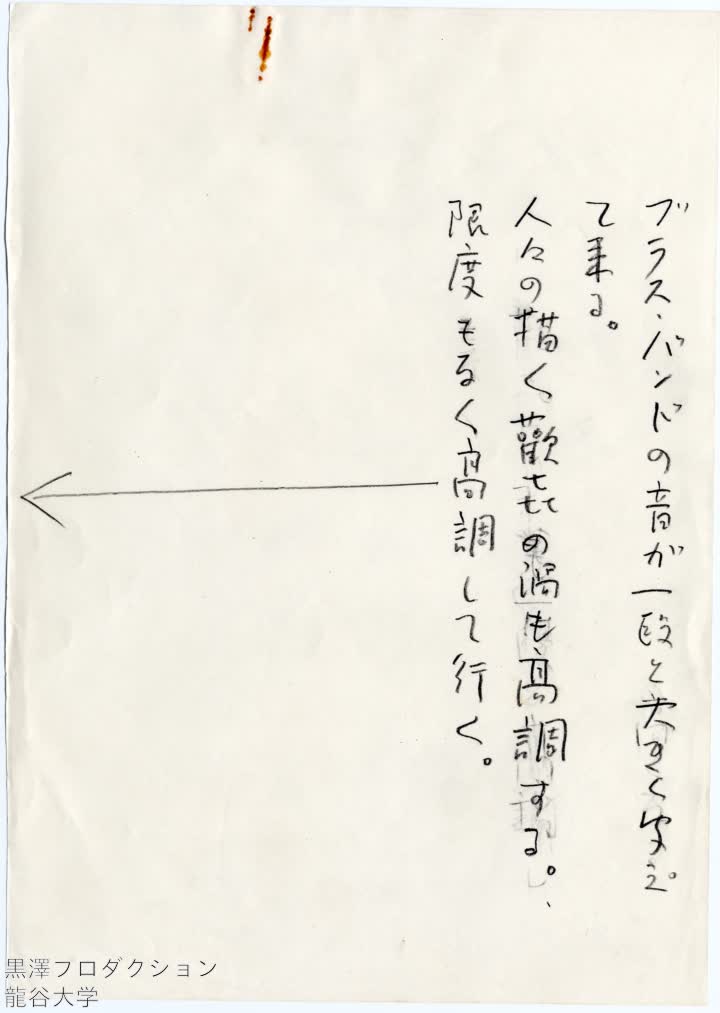 ブラス・バンドの音が一段と大きく安え
て来る。
人々の描く歡㐂の渦も高調する。、
限度もなく高調して行く。
黒澤プロダクション
龍谷大学